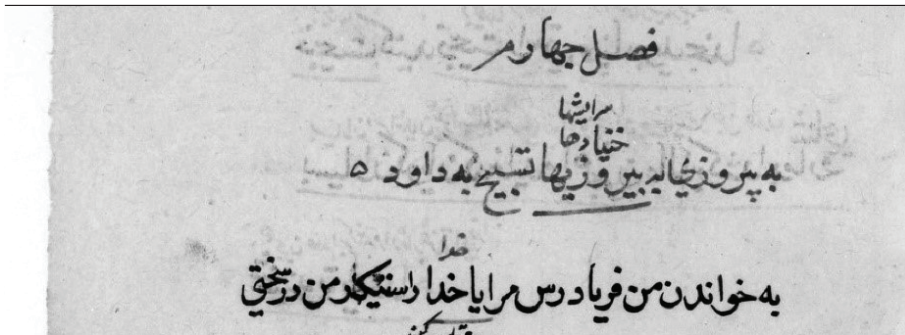 فصل چهارم
سرایشها
خنیادها
به پیروزی یا به پیروزیها تسبیح به داود ه
خدا
به خواندن من فریاد رس مرا یا خدا راستیکار من در سختی